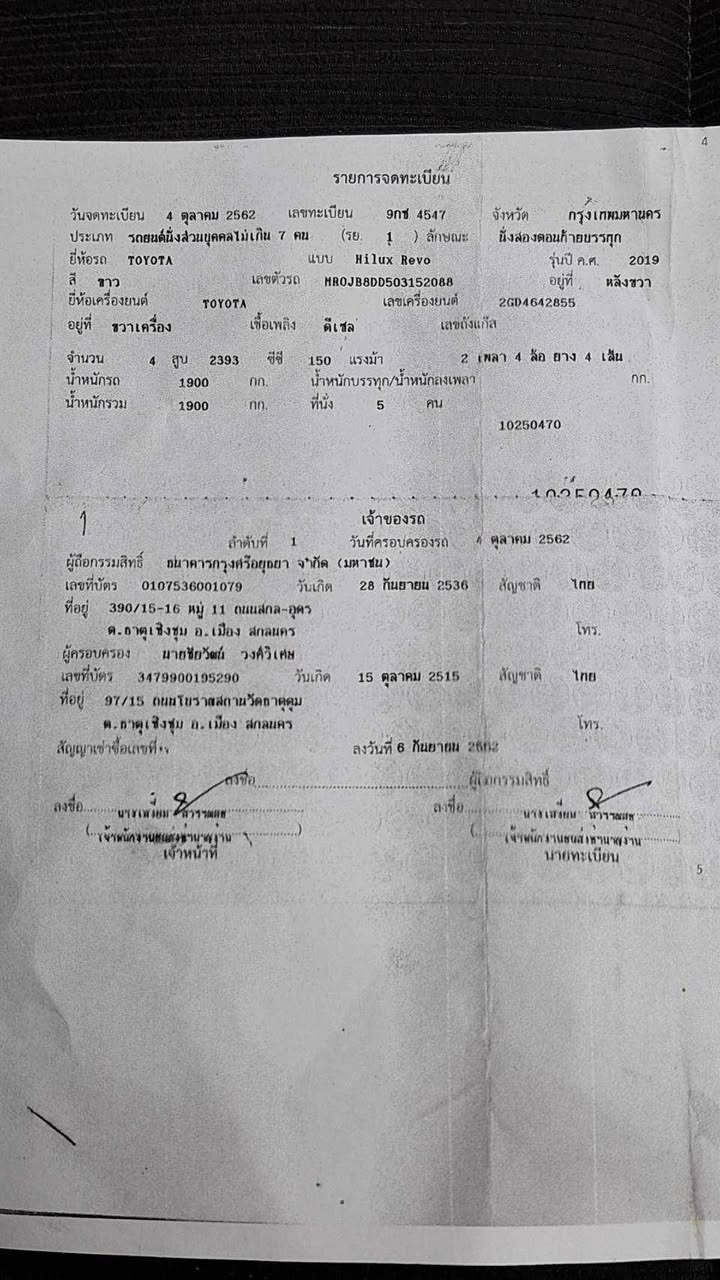 4
รายการจดทะเบียน
วันจดทะเบียน 4 ตุลาคม 2562 เลขทะเบียน 9กช 4547 จังหวัด กรุงเทพมหานคร
ประเภท รถยนต์นั่งส่วนบุคคลไม่เกิน 7 คน (รย. 1 ) ลักษณะ นั่งสองตอนท้ายบรรทุก
ยี่ห้อรถ TOYOTA แบบ Hilux Revo รุ่นปี ค.ศ. 2019
สี ขาว เลขตัวรถ MR0JB8DD503152088 อยู่ที่ หลังขวา
ยี่ห้อเครื่องยนต์ TOYOTA เลขเครื่องยนต์ 2GD4642855
อยู่ที่ ขวาเครื่อง เชื้อเพลิง ดีเซล เลขถังแก๊ส
จำนวน 4 สูบ 2393 ซีซี 150 แรงม้า 2 เพลา 4 ล้อ ยาง 4 เส้น
น้ำหนักรถ 1900 กก. น้ำหนักบรรทุก/น้ำหนักลงเพลา กก.
น้ำหนักรวม 1900 กก. ที่นั่ง 5 คน
10250470
10250470
1
เจ้าของรถ
ลำดับที่ 1 วันที่ครอบครองรถ 4 ตุลาคม 2562
ผู้ถือกรรมสิทธิ์ ธนาคารกรุงศรีอยุธยา จำกัด (มหาชน)
เลขที่บัตร 0107536001079 วันเกิด 28 กันยายน 2536 สัญชาติ ไทย
ที่อยู่ 390/15-16 หมู่ 11 ถนนสกล-อุดร
ต.ธาตุเชิงชุม อ.เมือง สกลนคร โทร.
ผู้ครอบครอง นายชัยวัฒน์ วงศ์วิเศษ
เลขที่บัตร 3479900195290 วันเกิด 15 ตุลาคม 2515 สัญชาติ ไทย
ที่อยู่ 97/15 ถนนโบราณสถานวัดธาตุดุม
ต.ธาตุเชิงชุม อ.เมือง สกลนคร โทร.
สัญญาเช่าซื้อเลขที่ ลงวันที่ 6 กันยายน 2562
ลงชื่อ ผู้ถือกรรมสิทธิ์
ลงชื่อ ลงชื่อ
(เจ้าพนักงานขนส่งชำนาญงาน) (เจ้าพนักงานขนส่งชำนาญงาน
เจ้าหน้าที่ นายทะเบียน
5